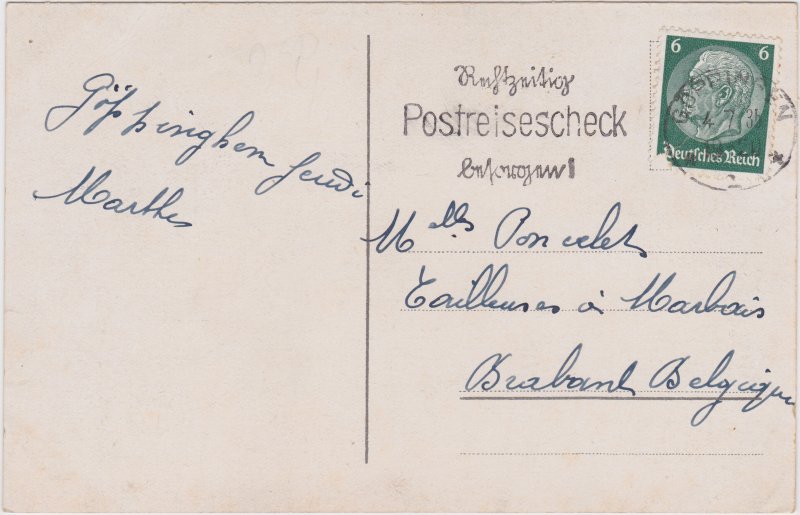 Göppinghem Jeudi
Marthe
Rechtzeitig
Postreisescheck
besorgen!
6 6
Deutsches Reich
GÖPPINGEN
4.7.35
Melles Poncelet
Tailleuses à Marbais
Brabant Belgique